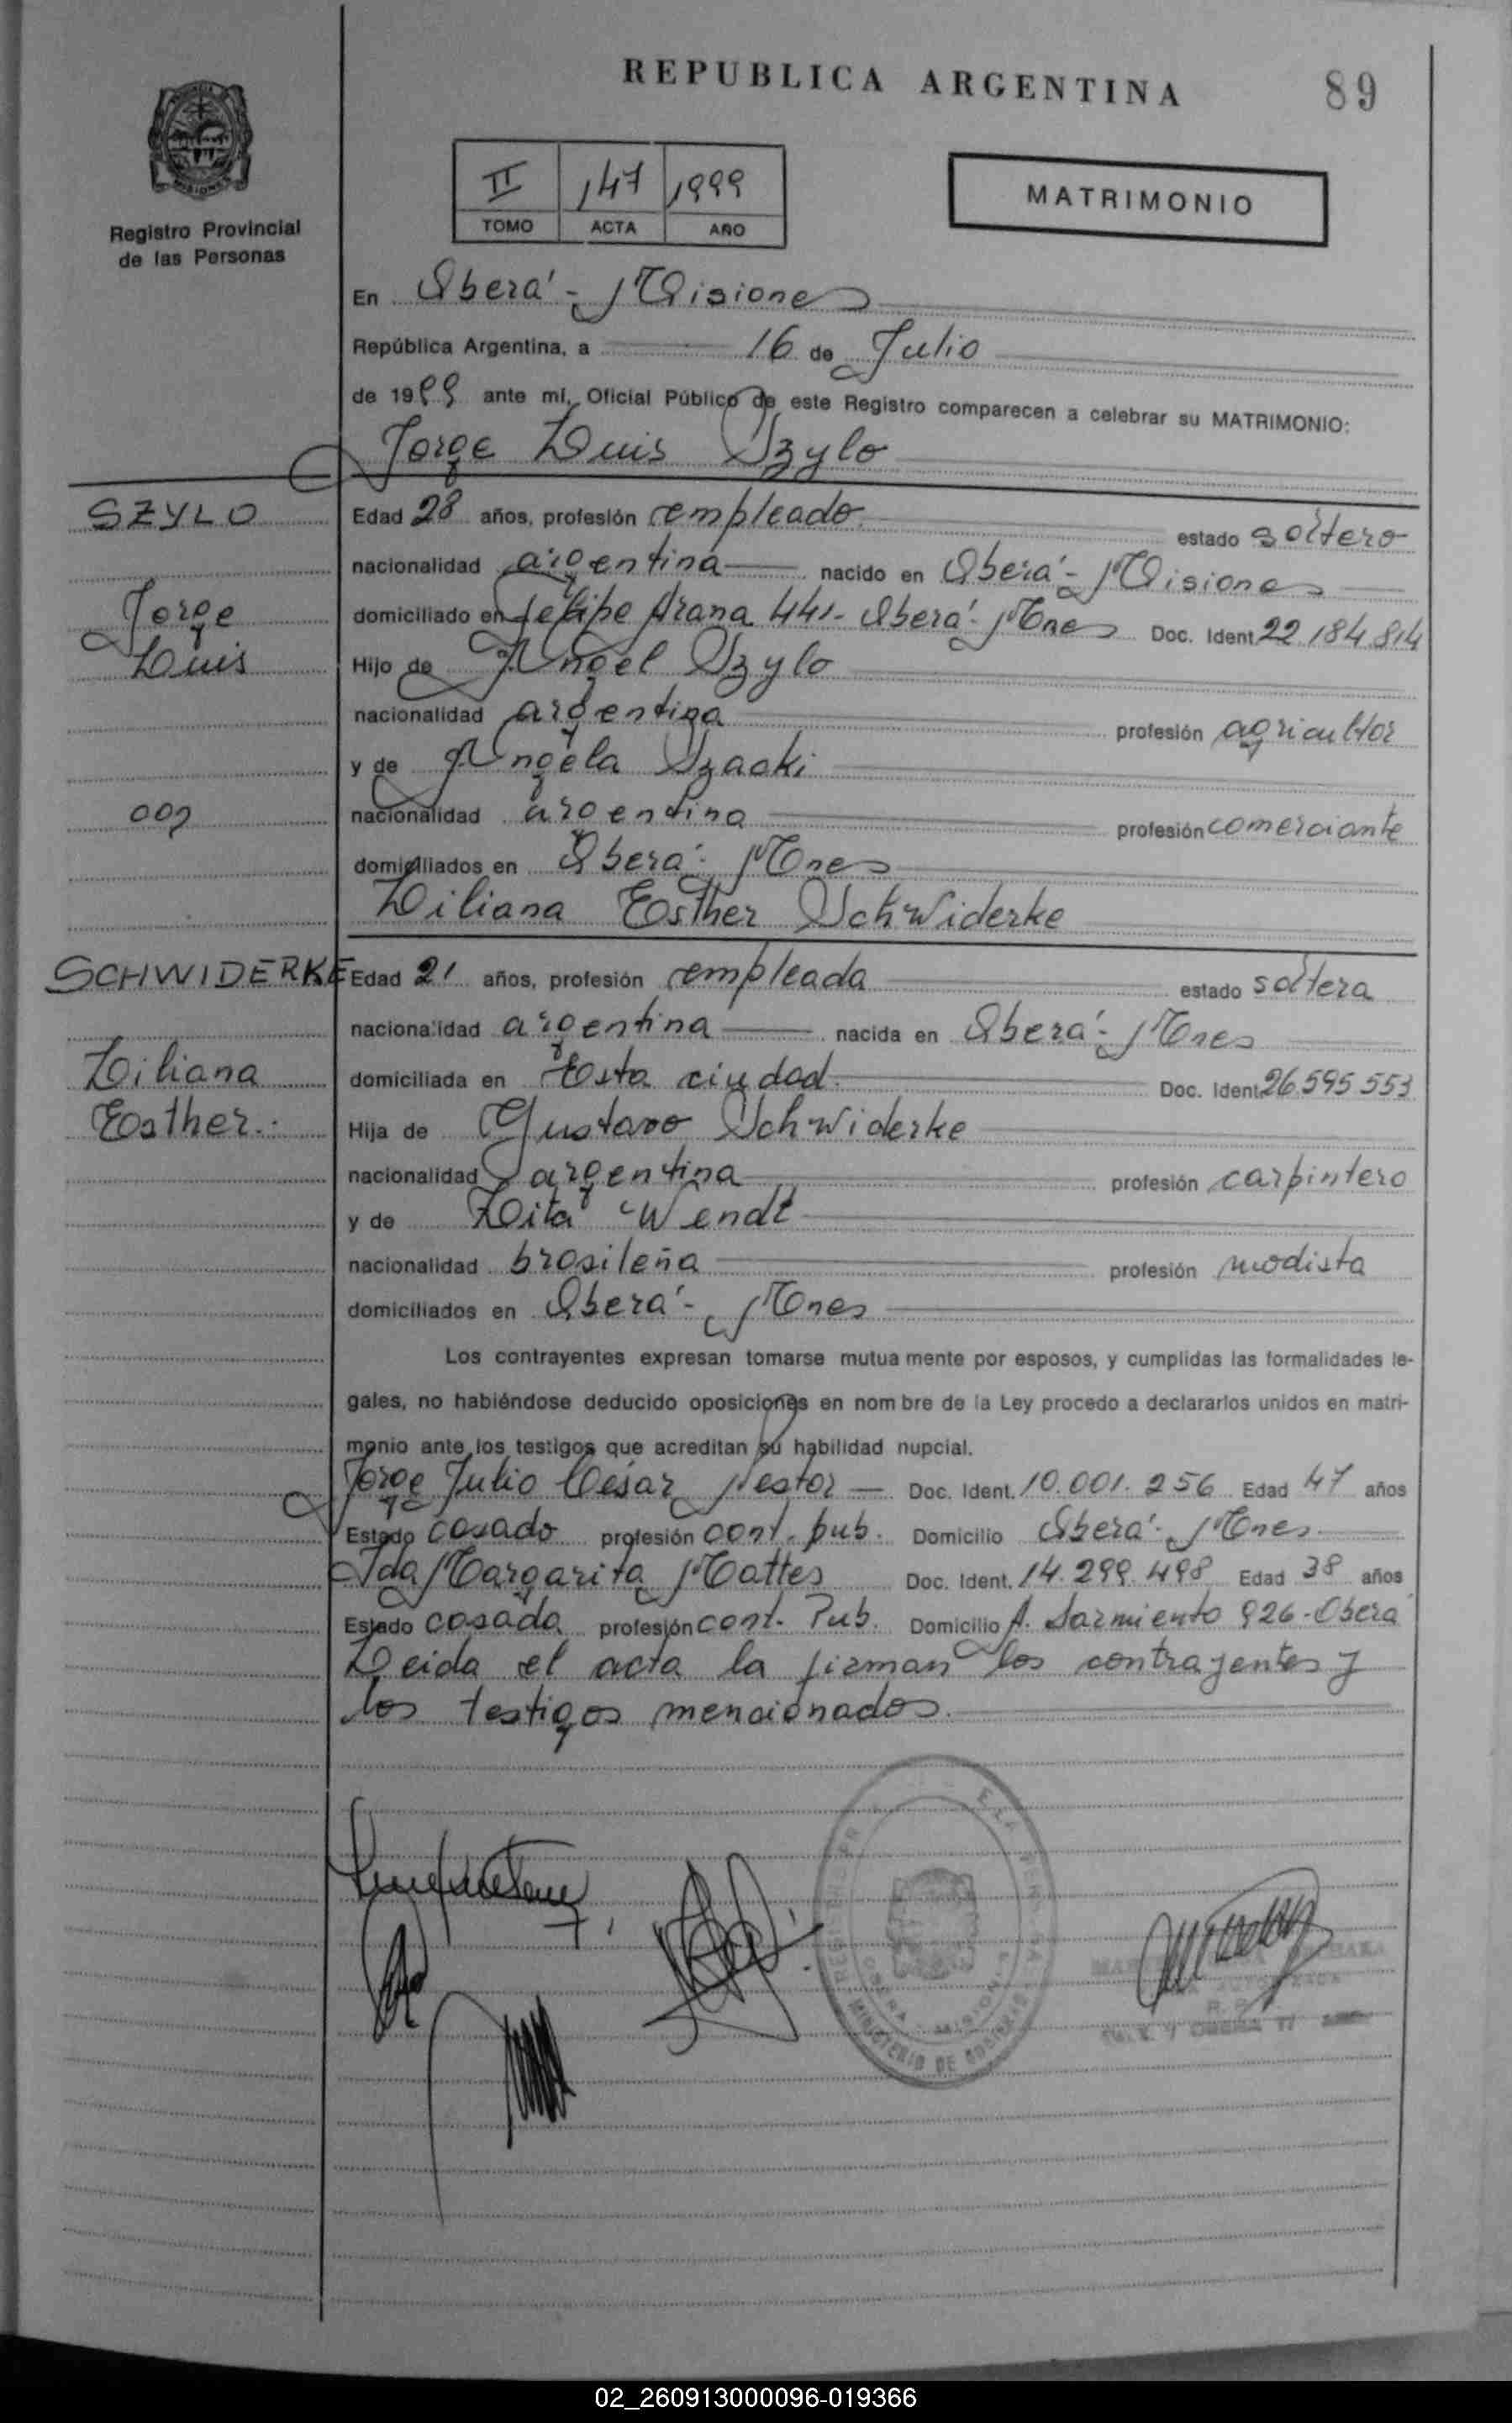 REPUBLICA ARGENTINA
89
II 147 1999
TOMO ACTA AÑO
MATRIMONIO
Registro Provincial
de las Personas
En Oberá - Misiones
República Argentina, a 16 de Julio
de 1999 ante mí, Oficial Público de este Registro comparecen a celebrar su MATRIMONIO:
Jorge Luis Szylo
SZYLO
Edad 28 años, profesión empleado. estado soltero
nacionalidad argentina nacido en Oberá - Misiones
Jorge
domiciliado en Felipe Arana 441- Oberá - Mnes Doc. Ident. 22.184.814
Luis
Hijo de Angel Szylo
nacionalidad argentina profesión agricultor
y de Angela Szacki
007
nacionalidad argentina profesión comerciante
domiciliados en Oberá - Mnes
Liliana Esther Schwiderke
SCHWIDERKE
Edad 21 años, profesión empleada estado soltera
nacionalidad argentina nacida en Oberá - Mnes
Liliana
domiciliada en Esta ciudad. Doc. Ident. 26.595.553
Esther.
Hija de Gustavo Schwiderke
nacionalidad argentina profesión carpintero
y de Lita Wendt
nacionalidad brasileña profesión modista
domiciliados en Oberá - Mnes
Los contrayentes expresan tomarse mutua mente por esposos, y cumplidas las formalidades le-
gales, no habiéndose deducido oposiciones en nom bre de la Ley procedo a declararlos unidos en matri-
monio ante los testigos que acreditan su habilidad nupcial.
Jorge Julio César Nestor Doc. Ident. 10.001.256 Edad 47 años
Estado casado profesión cont. pub. Domicilio Oberá - Mnes
Ida Margarita Mattes Doc. Ident. 14.299.498 Edad 38 años
Estado casada profesión cont. Pub. Domicilio A. Sarmiento 926 - Oberá
Leida el acta la firman los contrayentes y
los testigos mencionados.
MINISTERIO DE GOBIERNO
OBERA MISIONES
02_260913000096-019366